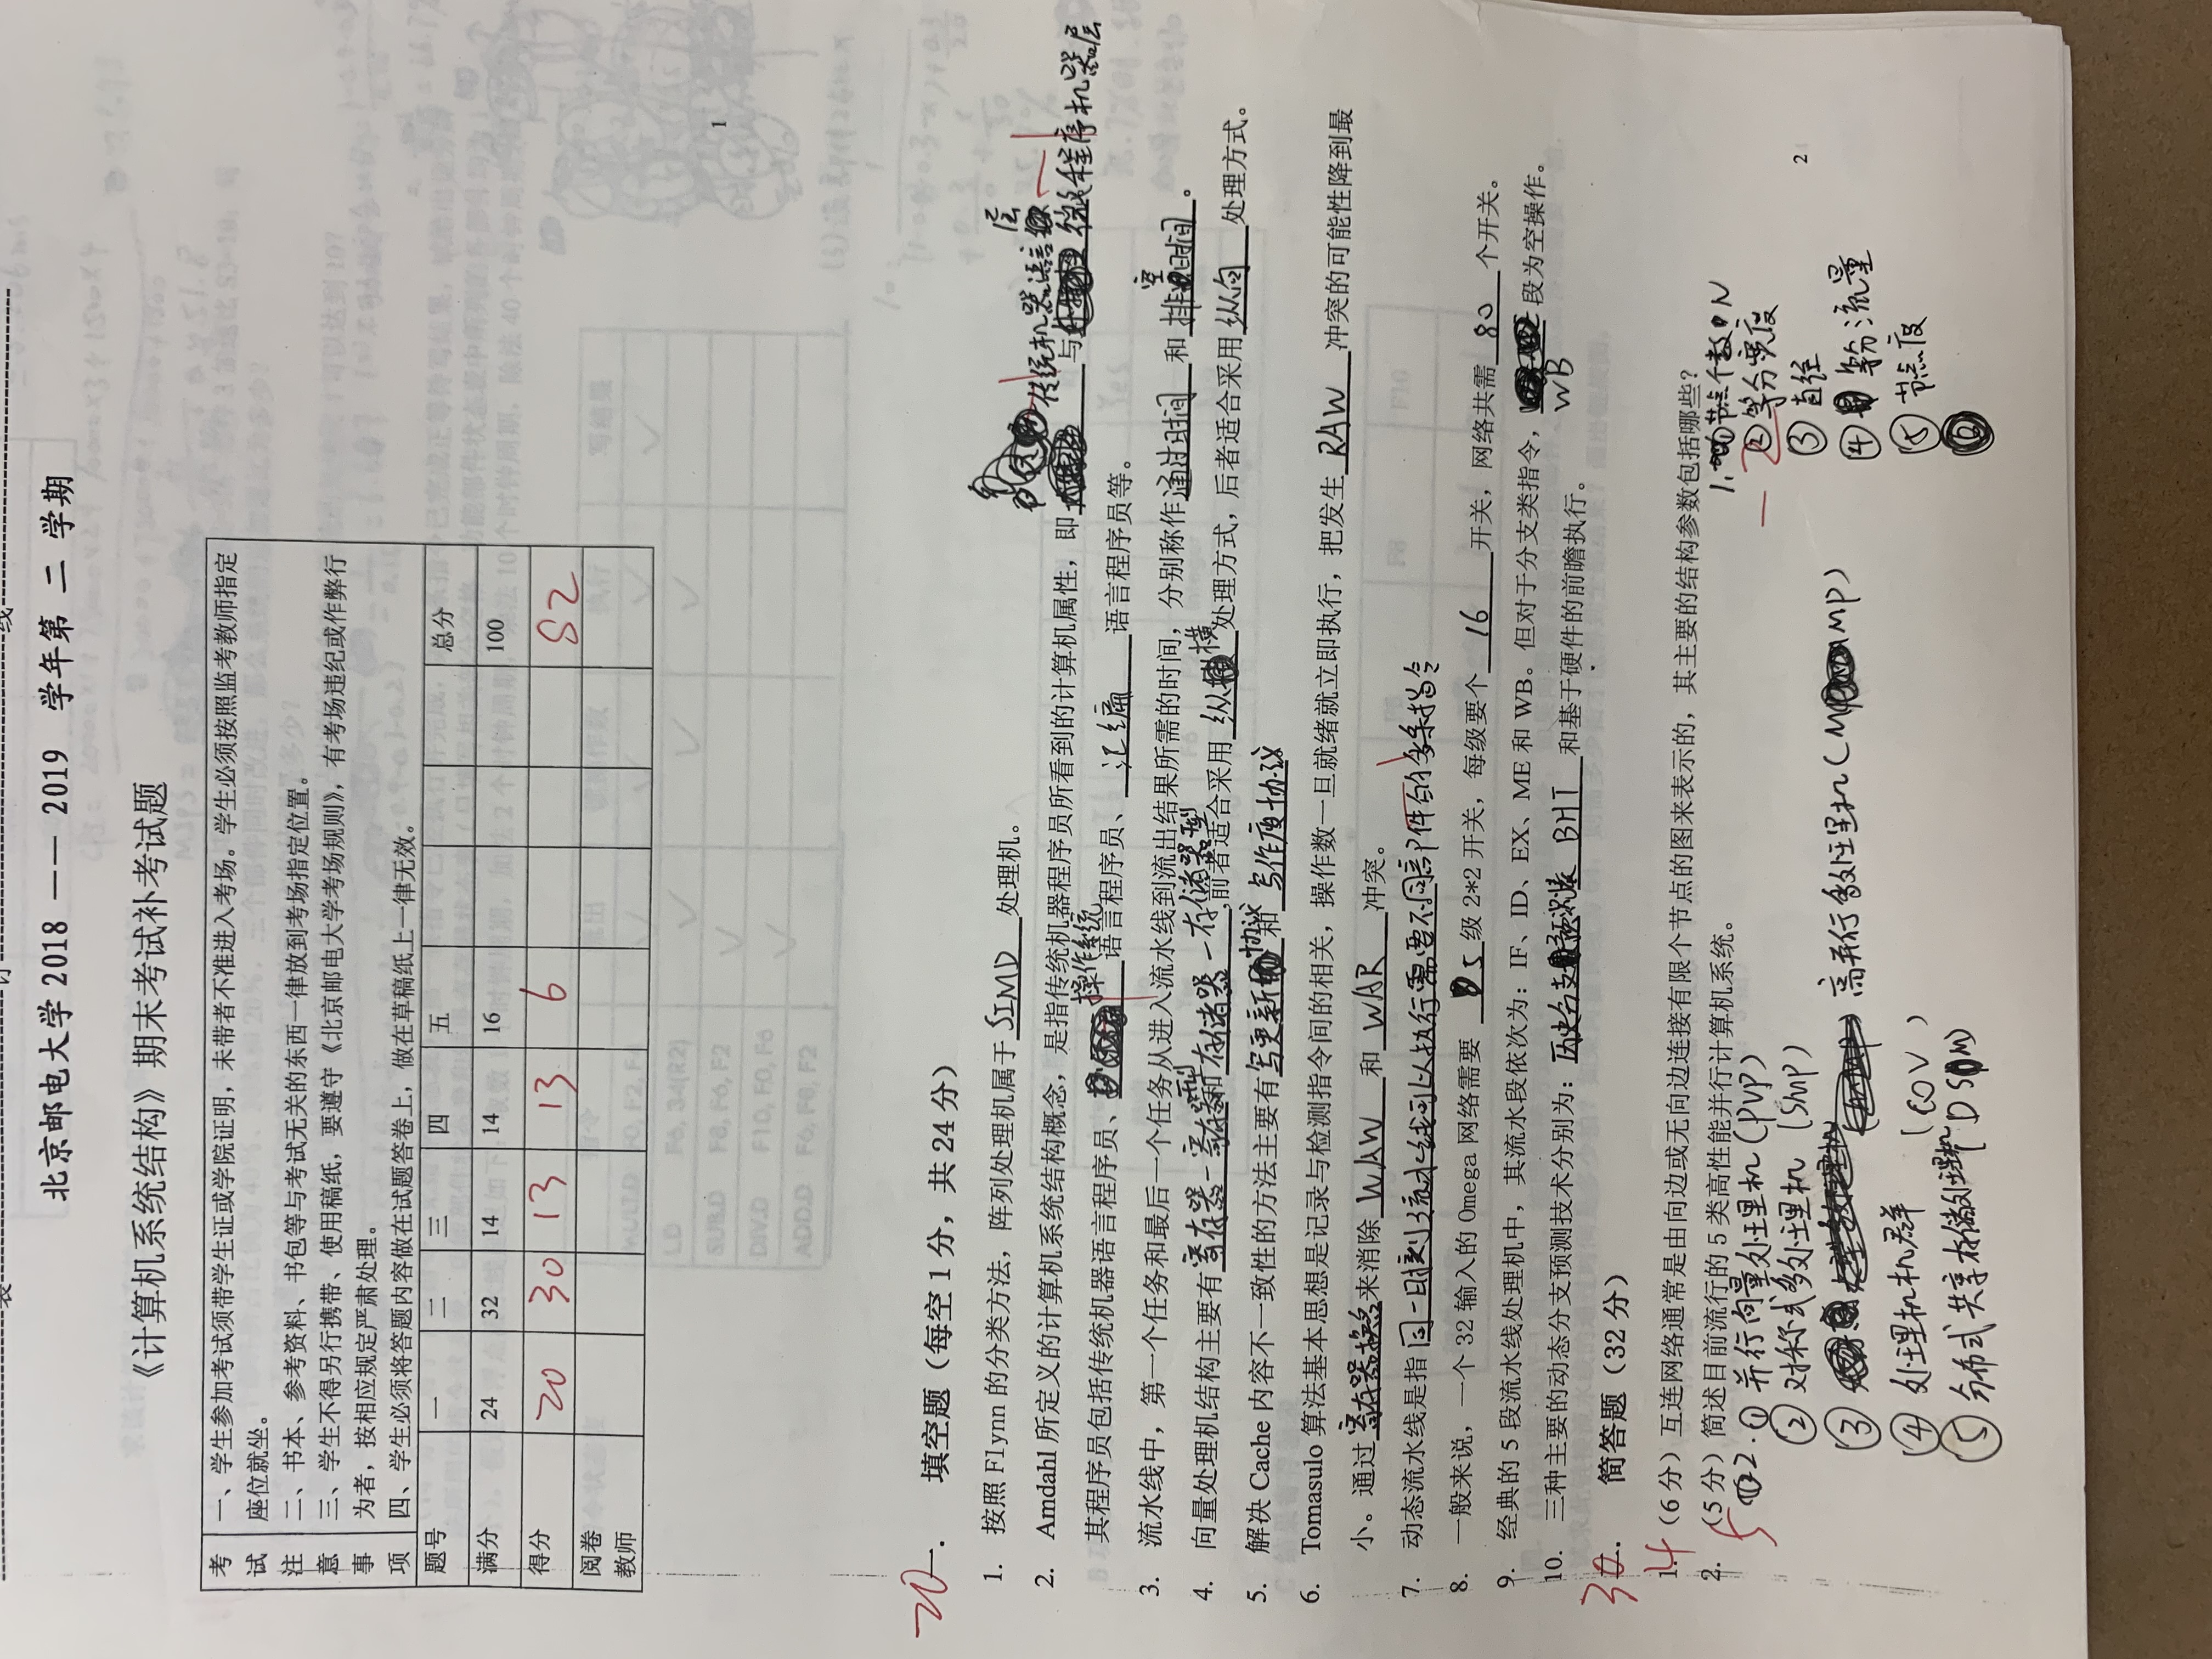 装 订 线
北京邮电大学 2018 —— 2019 学年第 二 学期
《计算机系统结构》期末考试补考试题
考试注意事项
一、学生参加考试须带学生证或学院证明，未带者不准进入考场。学生必须按照监考教师指定
座位就坐。
二、书本、参考资料、书包等与考试无关的东西一律放到考场指定位置。
三、学生不得另行携带、使用稿纸，要遵守《北京邮电大学考场规则》，有考场违纪或作弊行
为者，按相应规定严肃处理。
四、学生必须将答题内容做在试题答卷上，做在草稿纸上一律无效。
题号 一 二 三 四 五 总分
满分 24 32 14 14 16 100
得分 20 30 13 13 6 82
阅卷
教师
1
20
一. 填空题（每空 1 分，共 24 分）
1. 按照 Flynn 的分类方法，阵列处理机属于 SIMD 处理机。
2. Amdahl 所定义的计算机系统结构概念，是指传统机器程序员所看到的计算机属性，即 传统机器语言层 与 微程序机器层
其程序员包括传统机器语言程序员、 操作系统 语言程序员、 汇编 语言程序员等。
3. 流水线中，第一个任务和最后一个任务从进入流水线到流出结果所需的时间，分别称作 通过时间 和 排空时间 。
4. 向量处理机结构主要有 寄存器-寄存器型 和 存储器-存储器型 ,前者适合采用 纵横 处理方式，后者适合采用 纵向 处理方式。
5. 解决 Cache 内容不一致性的方法主要有 写更新协议 和 写作废协议
6. Tomasulo 算法基本思想是记录与检测指令间的相关，操作数一旦就绪就立即执行，把发生 RAW 冲突的可能性降到最
小。通过 寄存器换名 来消除 WAW 和 WAR 冲突。
7. 动态流水线是指 同一时刻流水线可以执行需要不同部件的多条指令
8. 一般来说，一个 32 输入的 Omega 网络需要 5 级 2*2 开关，每级要个 16 开关，网络共需 80 个开关。
9. 经典的 5 段流水线处理机中，其流水段依次为：IF、ID、EX、ME 和 WB。但对于分支类指令， WB 段为空操作。
10. 三种主要的动态分支预测技术分别为： 历史分支预测表 BHT 和基于硬件的前瞻执行。
30
二. 简答题（32 分）
4
1. （6 分）互连网络通常是由有向边或无向边连接有限个节点的图来表示的，其主要的结构参数包括哪些？
2. （5 分）简述目前流行的 5 类高性能并行计算机系统。
5
1. ① 节点个数 N
-2
② 等分宽度
③ 直径
④ 等分流量
⑤ 节点度
2. ① 并行向量处理机 (PVP)
② 对称式多处理机 (SMP)
③ 高并行多处理机
④ 处理机机群 (COV)
⑤ 分布式共享存储处理机 (DSM)
2